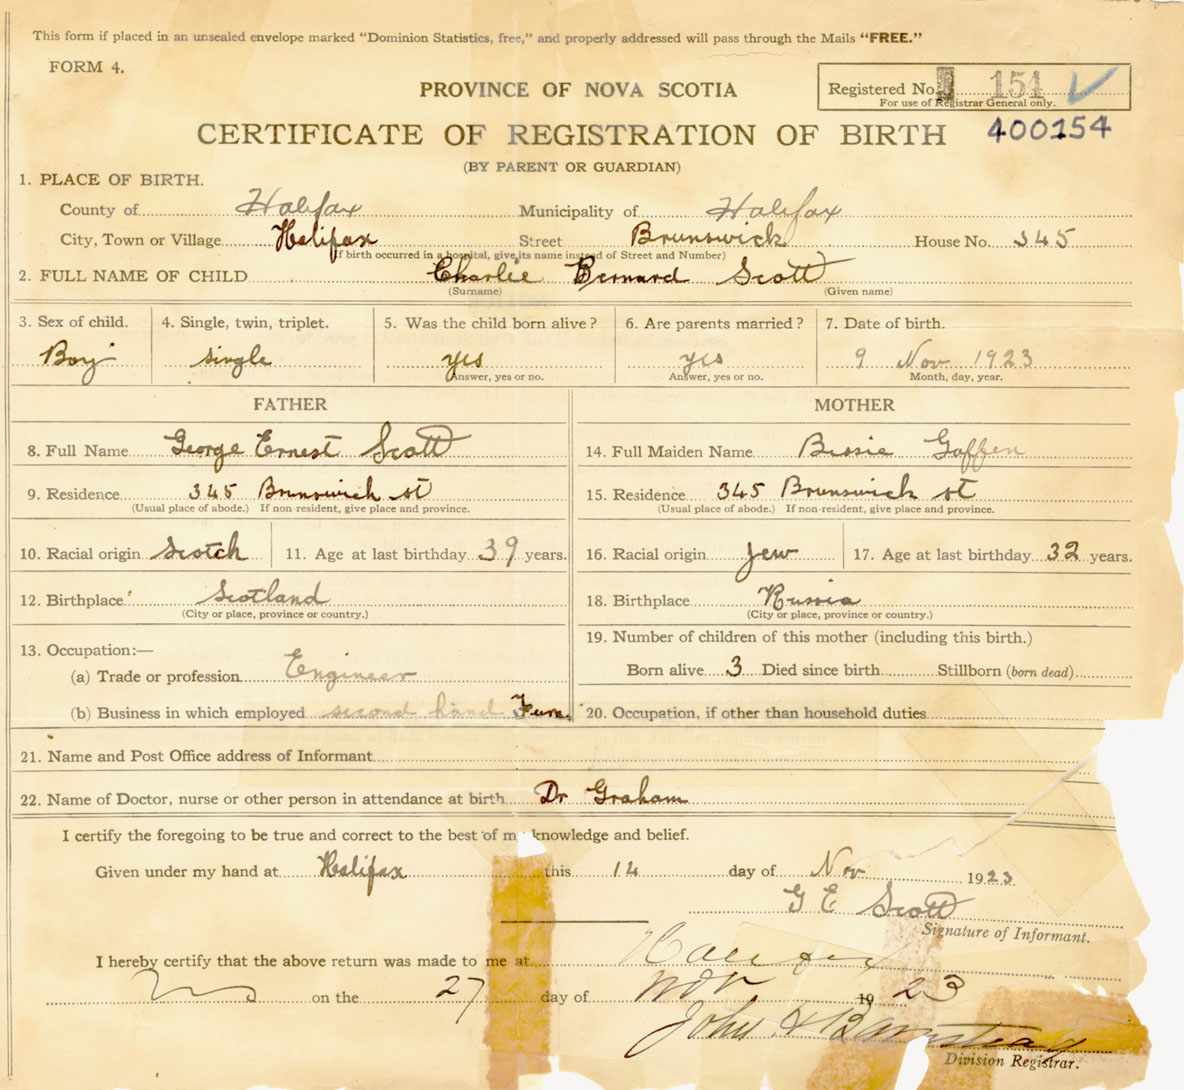 This form if placed in an unsealed envelope marked "Dominion Statistics, free," and properly addressed will pass through the Mails "FREE."
FORM 4.
PROVINCE OF NOVA SCOTIA
Registered No. 154
For use of Registrar General only.
CERTIFICATE OF REGISTRATION OF BIRTH 400154
(BY PARENT OR GUARDIAN)
1. PLACE OF BIRTH.
County of Halifax Municipality of Halifax
City, Town or Village Halifax Street Brunswick House No. 345
(If birth occurred in a hospital, give its name instead of Street and Number)
2. FULL NAME OF CHILD Charlie Bernard Scott
(Surname) (Given name)
3. Sex of child. 4. Single, twin, triplet. 5. Was the child born alive? 6. Are parents married? 7. Date of birth.
Boy single yes yes 9 Nov 1923
Answer, yes or no. Answer, yes or no. Month, day, year.
FATHER MOTHER
8. Full Name George Ernest Scott 14. Full Maiden Name Bessie Gaffen
9. Residence 345 Brunswick st 15. Residence 345 Brunswick st
(Usual place of abode.) If non-resident, give place and province. (Usual place of abode.) If non-resident, give place and province.
10. Racial origin Scotch 11. Age at last birthday 39 years. 16. Racial origin Jew 17. Age at last birthday 32 years.
12. Birthplace Scotland 18. Birthplace Russia
(City or place, province or country.) (City or place, province or country.)
19. Number of children of this mother (including this birth.)
13. Occupation:—
(a) Trade or profession Engineer Born alive 3 Died since birth Stillborn (born dead)
(b) Business in which employed second hand Furn. 20. Occupation, if other than household duties
21. Name and Post Office address of Informant
22. Name of Doctor, nurse or other person in attendance at birth Dr Graham
I certify the foregoing to be true and correct to the best of my knowledge and belief.
Given under my hand at Halifax this 14 day of Nov 1923
G E Scott
Signature of Informant.
I hereby certify that the above return was made to me at Halifax
on the 27 day of Nov 1923
John H Barnstead
Division Registrar.